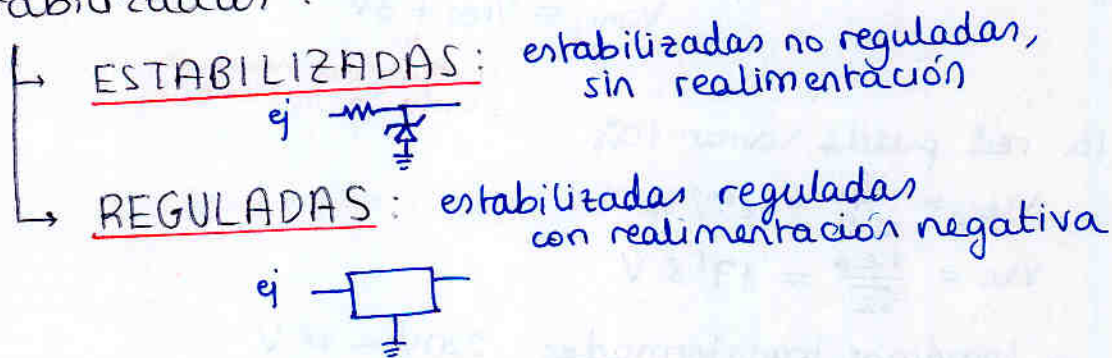 ESTABILIZADAS: estabilizadas no reguladas,
sin realimentación
ej
REGULADAS: estabilizadas reguladas
con realimentación negativa
ej